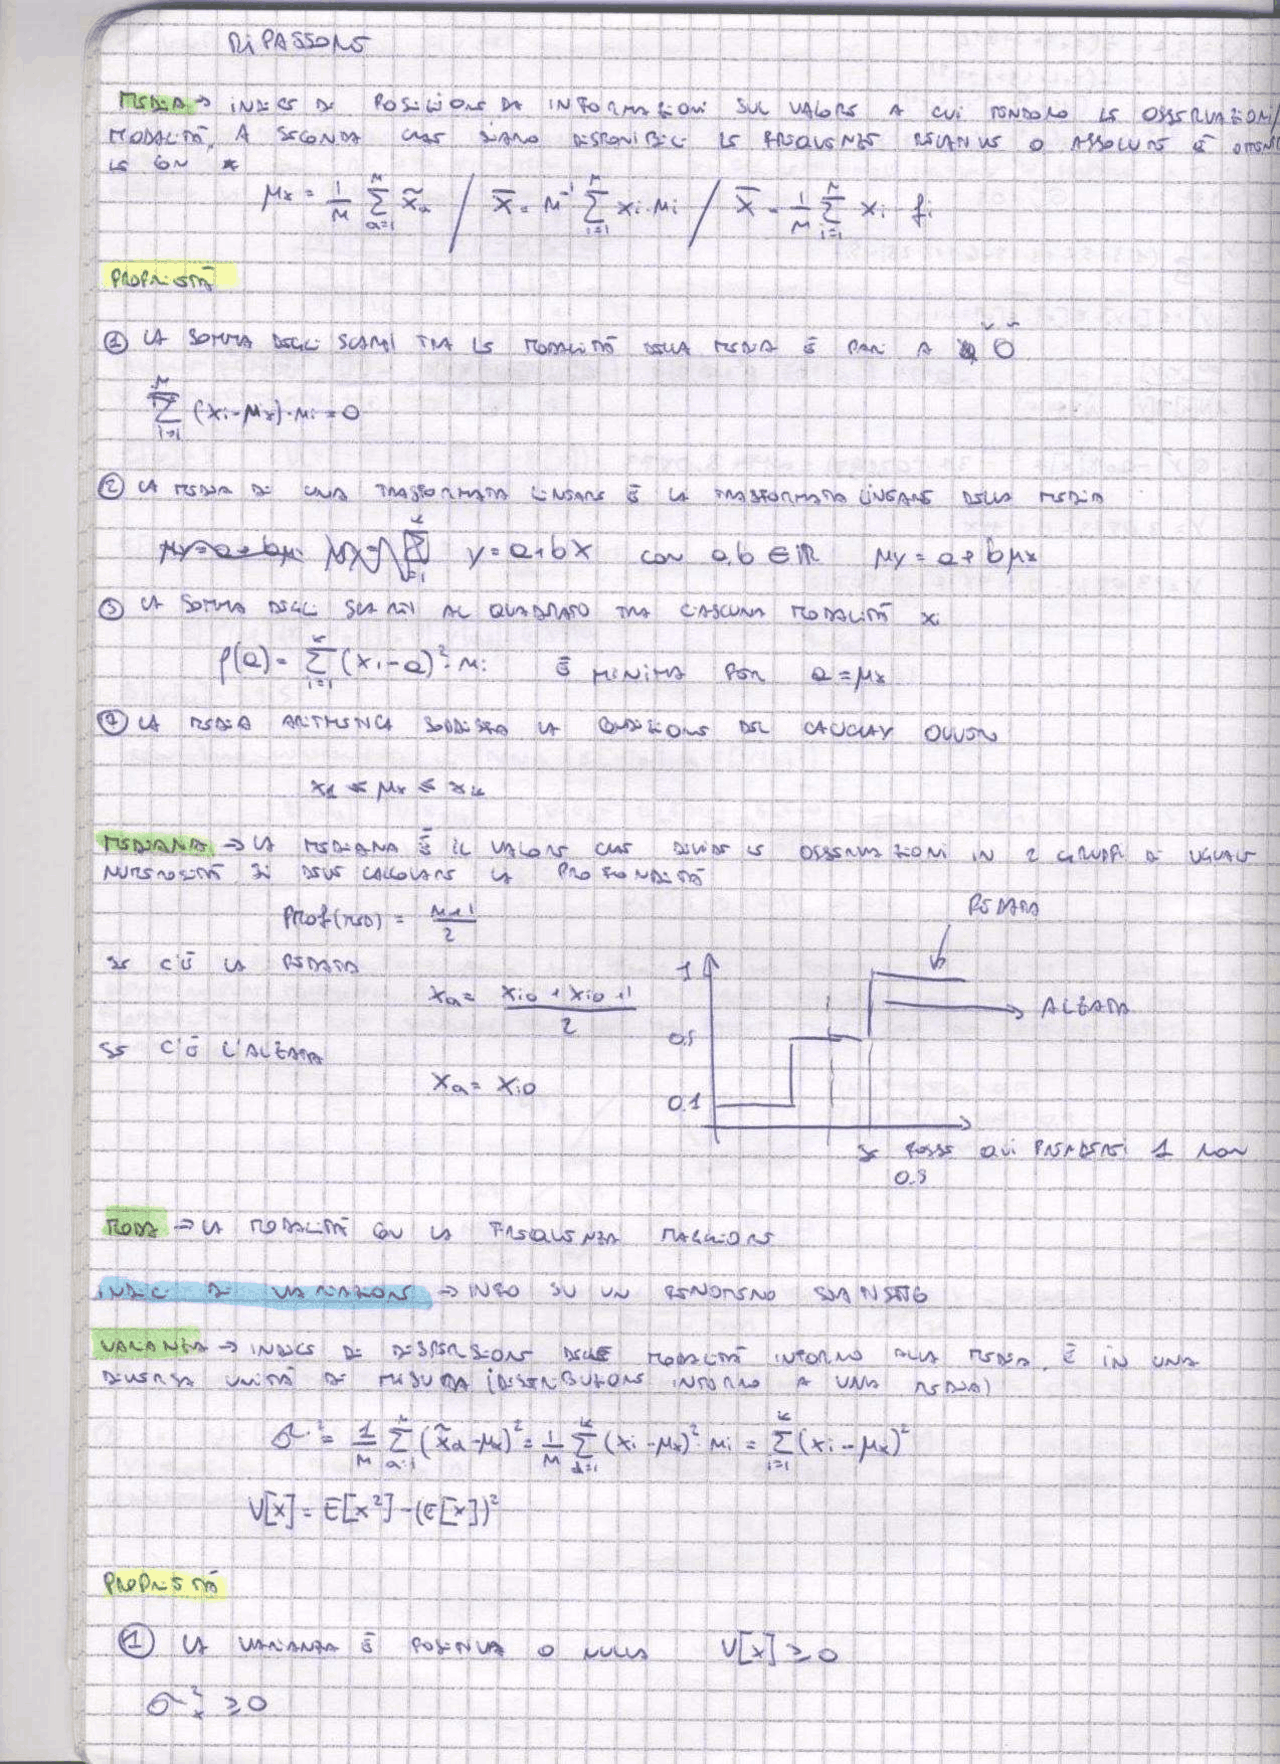 RIPASSONE
MEDIA → INDICE DI POSIZIONE DA INFORMAZIONI SUL VALORE A CUI TENDONO LE OSSERVAZIONI/
MODALITÀ, A SECONDA CHE SIANO DISPONIBILI LE FREQUENZE RELATIVE O ASSOLUTE È
μx = 1/n Σ(a=1, n) x̃a / x̄ = n⁻¹ Σ(i=1, n) xi·ni / x̄ = 1/n Σ(i=1, n) xi fi
PROPRIETÀ
① LA SOMMA DEGLI SCARTI TRA LE MODALITÀ DELLA MEDIA È PARI A 0
Σ(i=1, n) (xi-μx)·ni = 0
② LA MEDIA DI UNA TRASFORMATA LINEARE È LA TRASFORMATA LINEARE DELLA MEDIA
y = a+bx CON a,b ∈ ℝ μy = a+bμx
③ LA SOMMA DEGLI SCARTI AL QUADRATO TRA CIASCUNA MODALITÀ xi
f(a) = Σ(i=1, k) (xi-a)²·ni È MINIMA PER a = μx
④ LA MEDIA ARITMETICA SODDISFA LA CONDIZIONE DEL CAUCHY OVVERO
x1 ≤ μx ≤ xk
MEDIANA → LA MEDIANA È IL VALORE CHE DIVIDE LE OSSERVAZIONI IN 2 GRUPPI DI UGUALE
NUMEROSITÀ SI DEVE CALCOLARE LA PROFONDITÀ
PROF(MED) = n+1/2
PEDATA
SE C'È LA PEDATA
xa = xi0 + xi0+1 / 2
1
ALZATA
0.5
SE C'È L'ALZATA
xa = xi0
0.1
SE FOSSE QUI PRENDERESTI 1 NON
0.5
MODA → LA MODALITÀ CON LA FREQUENZA MAGGIORE
INDICI DI VARIAZIONE → INFO SU UN FENOMENO
VARIANZA → INDICE DI DISPERSIONE DELLE MODALITÀ INTORNO ALLA MEDIA. È IN UNA
DIVERSA UNITÀ DI MISURA (DISTRIBUZIONE INTORNO A UNA MEDIA)
σ² = 1/n Σ(a=1, n) (x̃a-μx)² = 1/n Σ(i=1, k) (xi-μx)²·ni = Σ(i=1, k) (xi-μx)²
V[x] = E[x²]-(E[x])²
PROPRIETÀ
① LA VARIANZA È POSITIVA O NULLA V[x] ≥ 0
σ²x ≥ 0